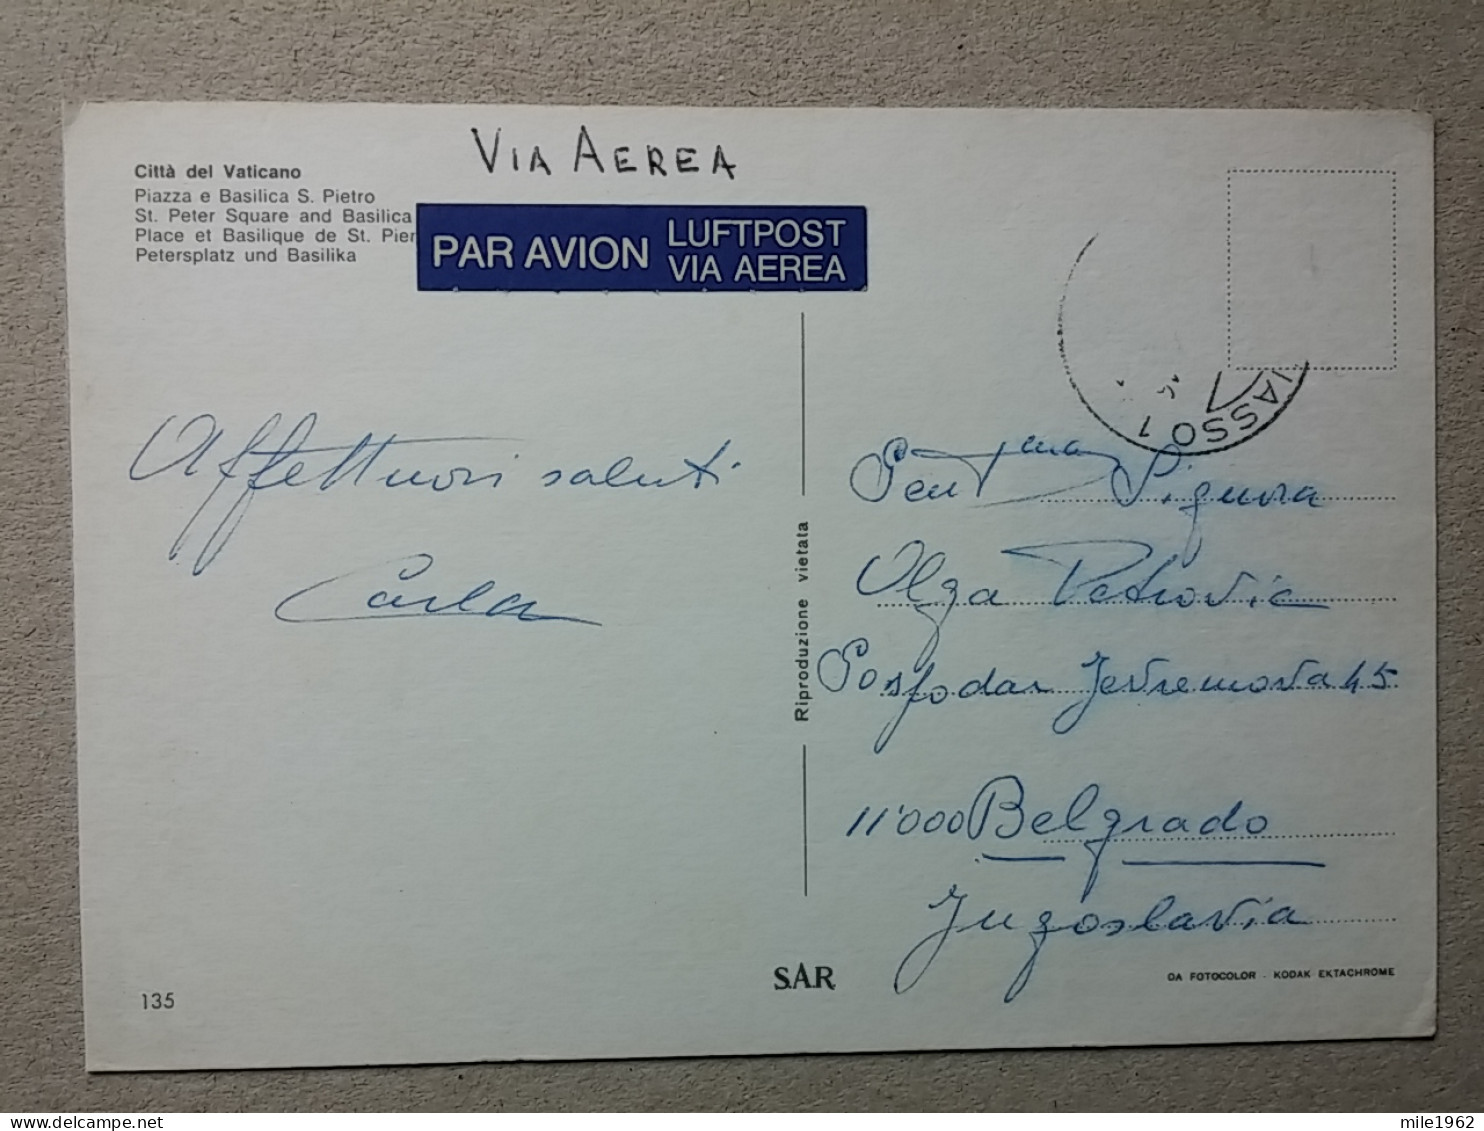 VIA AEREA
Città del Vaticano
Piazza e Basilica S. Pietro
St. Peter Square and Basilica
Place et Basilique de St. Pier
Petersplatz und Basilika
PAR AVION
LUFTPOST
VIA AEREA
IASSO 1
Affettuosi saluti
Carla
Riproduzione vietata
Gent.ma Signora
Olga Petrovic
Gospodar Jevremova 45
11'000 Belgrado
Jugoslavia
135
SAR
OA FOTOCOLOR - KODAK EKTACHROME
mile1962